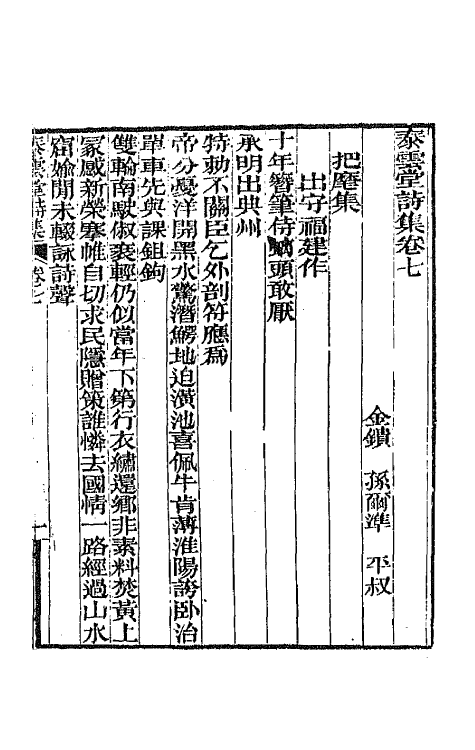 泰雲堂詩集卷七
金鐀　孫爾準　平叔
把麾集
出守福建作
十年簪筆侍螭頭敢厭
承明出典州
特勅不關臣乞外剖符應爲
帝分憂洋開黑水驚潛鰐地迫潢池喜佩牛肯薄淮陽誇臥治
單車先與課鉏鉤
雙輪南駛俶裝輕仍似當年下第行衣繡還鄉非素料焚黃上
冢感新榮搴帷自切求民隱贈策誰憐去國情一路經過山水
窟婾閒未輟詠詩聲
泰雲堂詩集　卷七　一